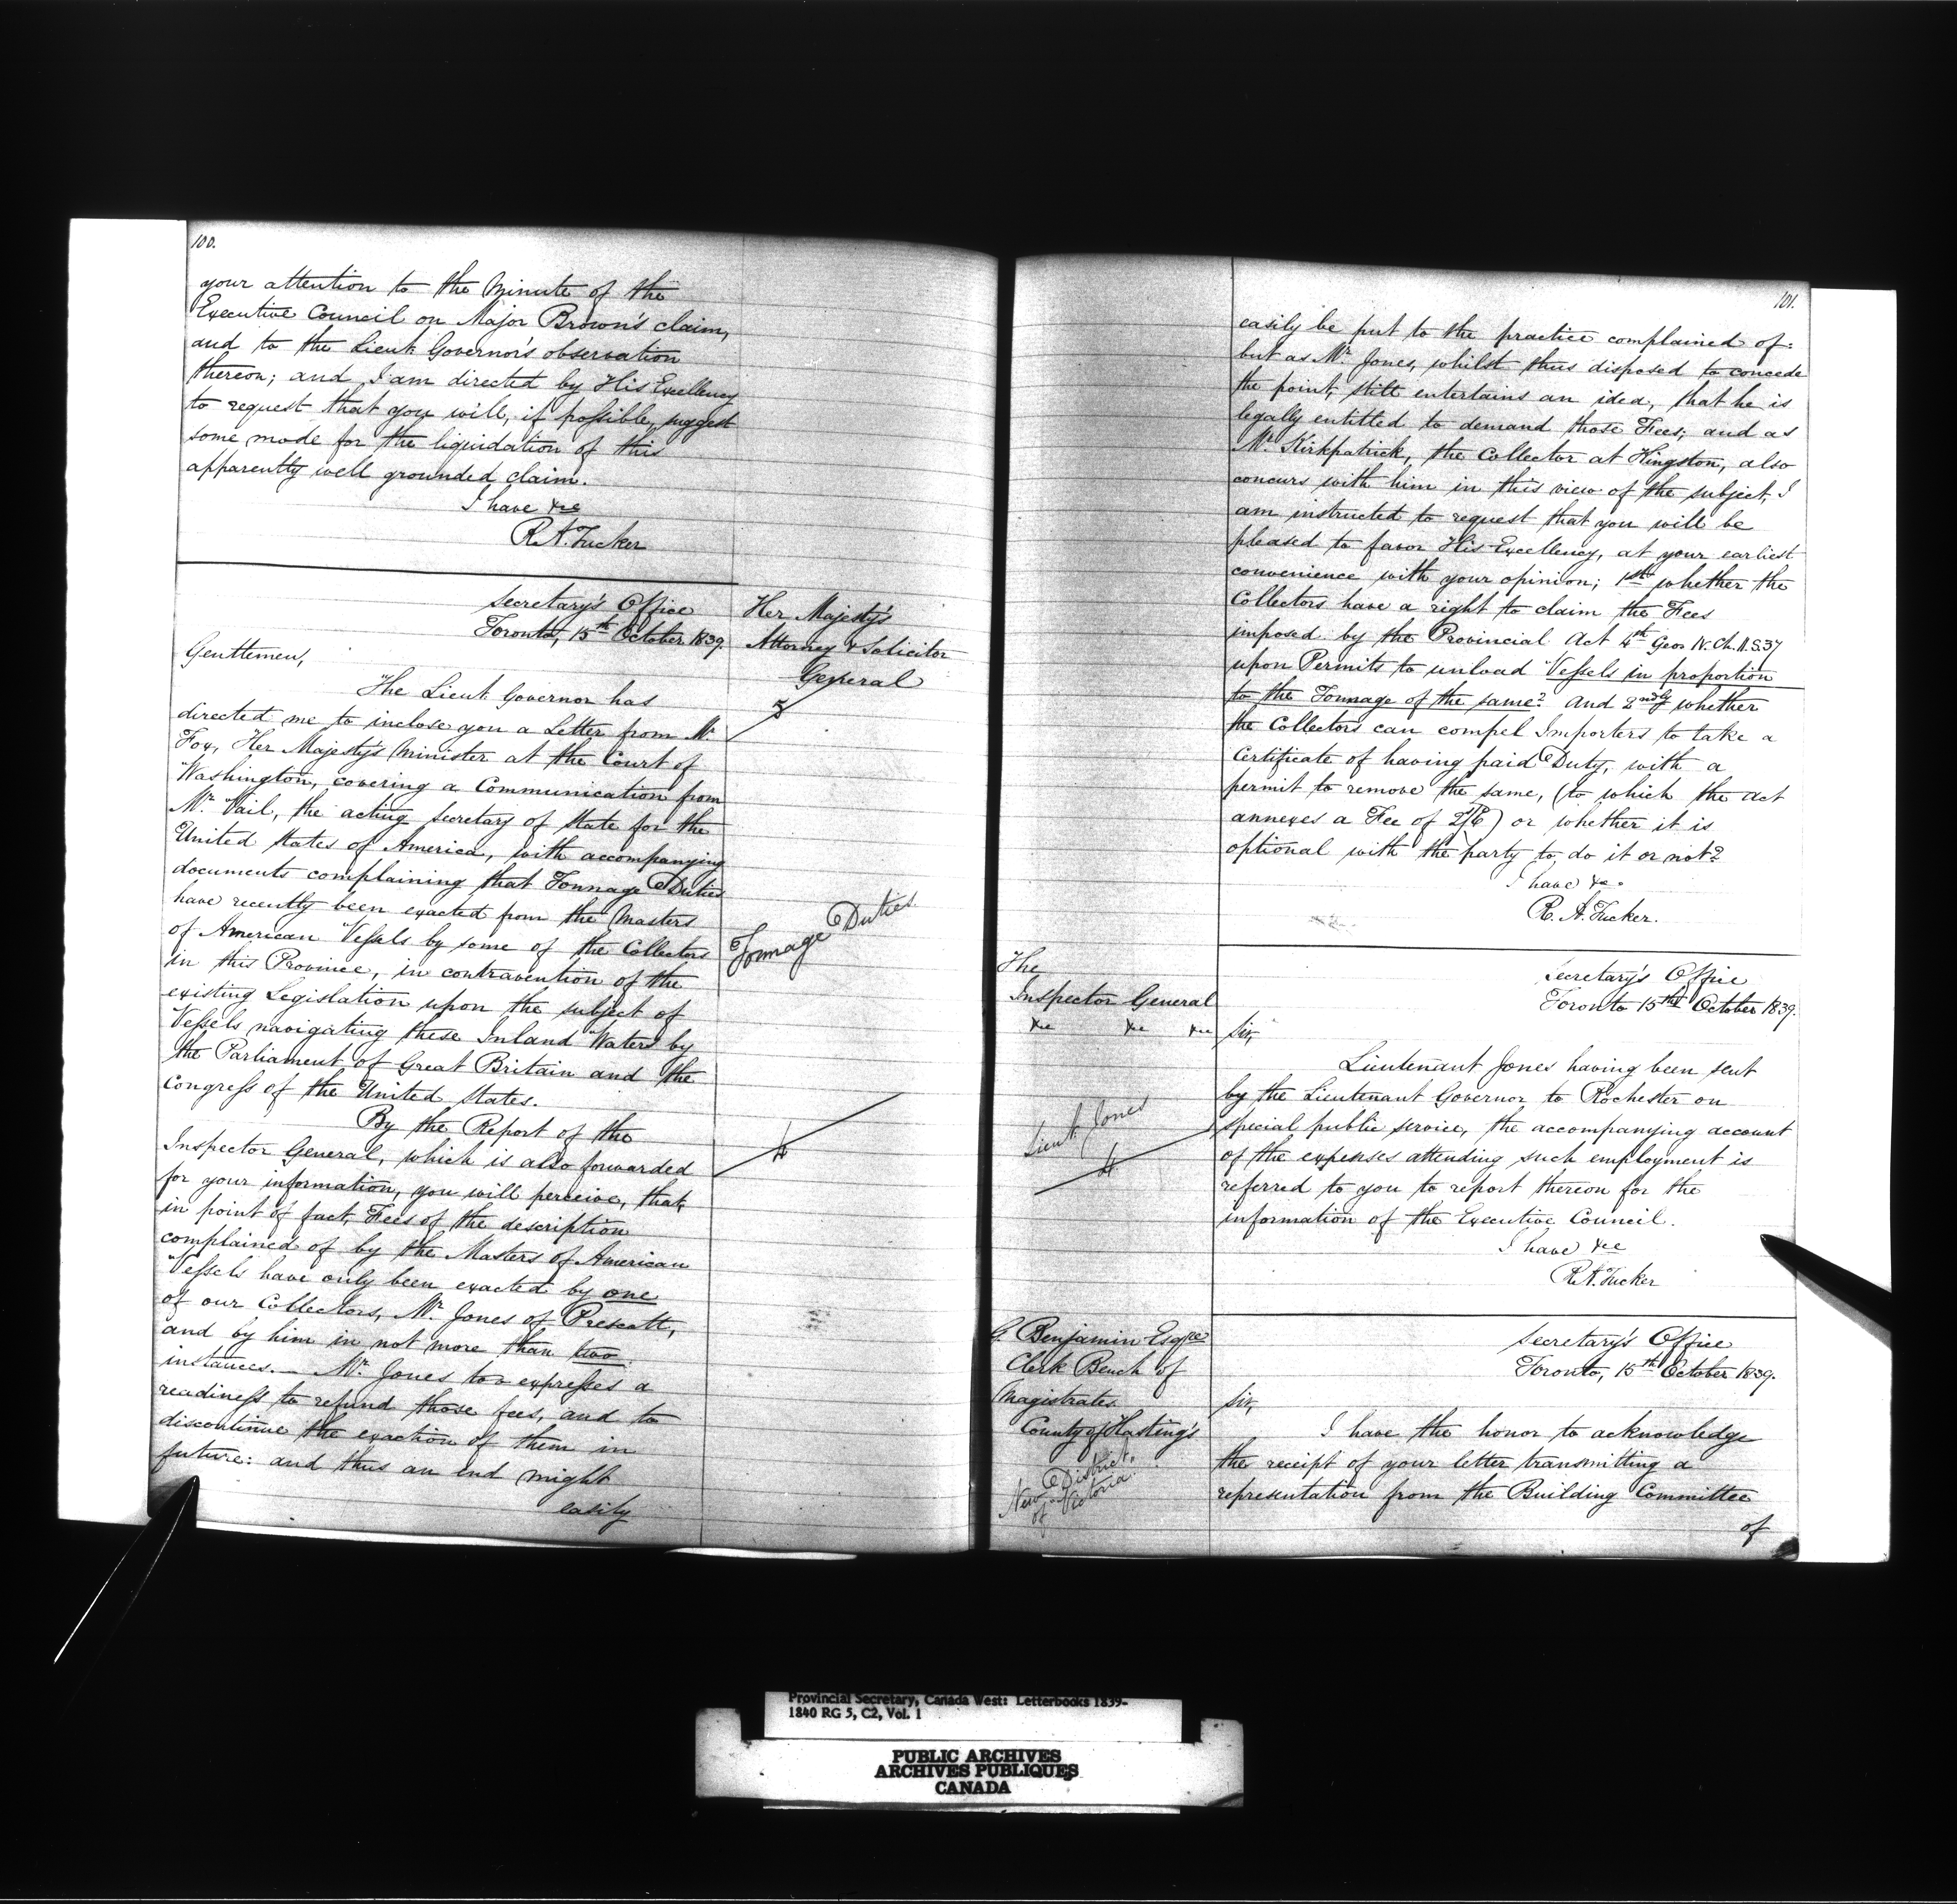 100.
your attention to the Minute of the
Executive Council on Major Brown's claim,
and to the Lieut. Governor's observation
thereon; and I am directed by His Excellency
to request that you will, if possible, suggest
some mode for the liquidation of this
apparently well grounded claim.
I have &ce
R.A. Tucker
Secretary's Office
Toronto, 15th October 1839.
Her Majesty's
Attorney & Solicitor
General
Gentlemen,
The Lieut Governor has
directed me to inclose you a Letter from Mr
Fox, Her Majesty's Minister at the Court of
Washington, covering a Communication from
Mr Vail, the acting Secretary of State for the
United States of America, with accompanying
documents complaining that Tonnage Duties
have recently been exacted from the Masters
of American Vessels by some of the Collectors
in this Province, in contravention of the
existing Legislation upon the subject of
Vessels navigating these Inland Waters by
the Parliament of Great Britain and the
Congress of the United States.
Tonnage Duties
By the Report of the
Inspector General, which is also forwarded
for your information, you will perceive, that,
in point of fact, Fees of the description
complained of by the Masters of American
Vessels have only been exacted by one
of our Collectors, Mr Jones of Prescott,
and by him in not more than two
instances. — Mr Jones too expresses a
readiness to refund those fees, and to
discontinue the exaction of them in
future: and thus an end might
easily
101.
easily be put to the practice complained of:
but as Mr Jones, whilst thus disposed to concede
the point, still entertains an idea, that he is
legally entitled to demand those Fees; and as
Mr Kirkpatrick, the Collector at Kingston, also
concurs with him in this view of the subject, I
am instructed to request that you will be
pleased to favor His Excellency, at your earliest
convenience with your opinion; 1st whether the
Collectors have a right to claim the Fees
imposed by the Provincial Act 4th Geo IV. Ch. 11. S. 37
upon Permits to unload Vessels in proportion
to the Tonnage of the same? And 2ndly whether
the Collectors can compel Importers to take a
Certificate of having paid Duty, with a
permit to remove the same, (to which the Act
annexes a Fee of 2/6) or whether it is
optional with the party to do it or not?
I have &c.
R. A. Tucker.
The
Inspector General
&c &c &c
Secretary's Office
Toronto 15th October 1839.
Sir,
Lieutenant Jones having been sent
by the Lieutenant Governor to Rochester on
special public service, the accompanying account
of the expenses attending such employment is
referred to you to report thereon for the
information of the Executive Council.
I have &ce
R.A. Tucker
Lieut. Jones
G. Benjamin Esqre
Clerk Bench of
Magistrates
County of Hasting's
New District
of Victoria.
Secretary's Office
Toronto, 15th October 1839.
Sir,
I have the honor to acknowledge
the receipt of your letter transmitting a
representation from the Building Committee
of
Provincial Secretary, Canada West: Letterbooks 1839-
1840 RG 5, C2, Vol. 1
PUBLIC ARCHIVES
ARCHIVES PUBLIQUES
CANADA